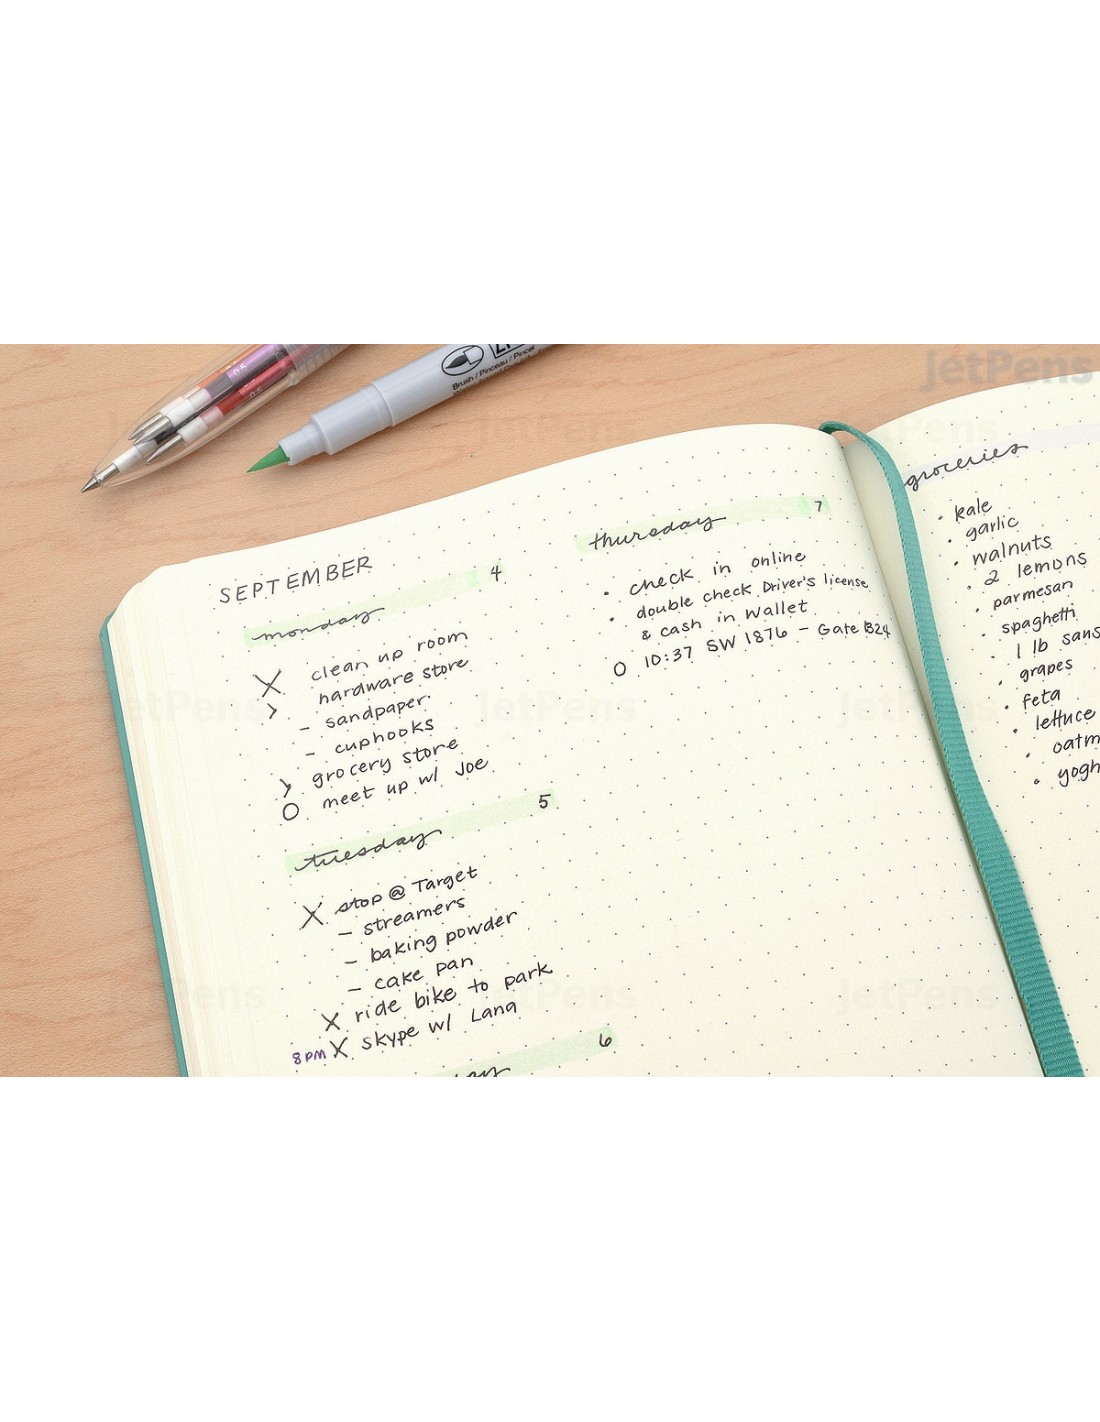 JetPens
Brush / Pinceau / Pincel
SEPTEMBER
monday 4
X clean up room
> hardware store
- sandpaper
- cuphooks
> grocery store
O meet up w/ Joe
tuesday 5
X stop @ Target
- streamers
- baking powder
- cake pan
X ride bike to park
8PM X skype w/ Lana
6
thursday 7
• check in online
• double check Driver's license
& cash in wallet
O 10:37 SW 1876 - Gate B24
groceries
• kale
• garlic
• walnuts
• 2 lemons
• parmesan
• spaghetti
• 1 lb sans
• grapes
• feta
• lettuce
• oatm
• yogh